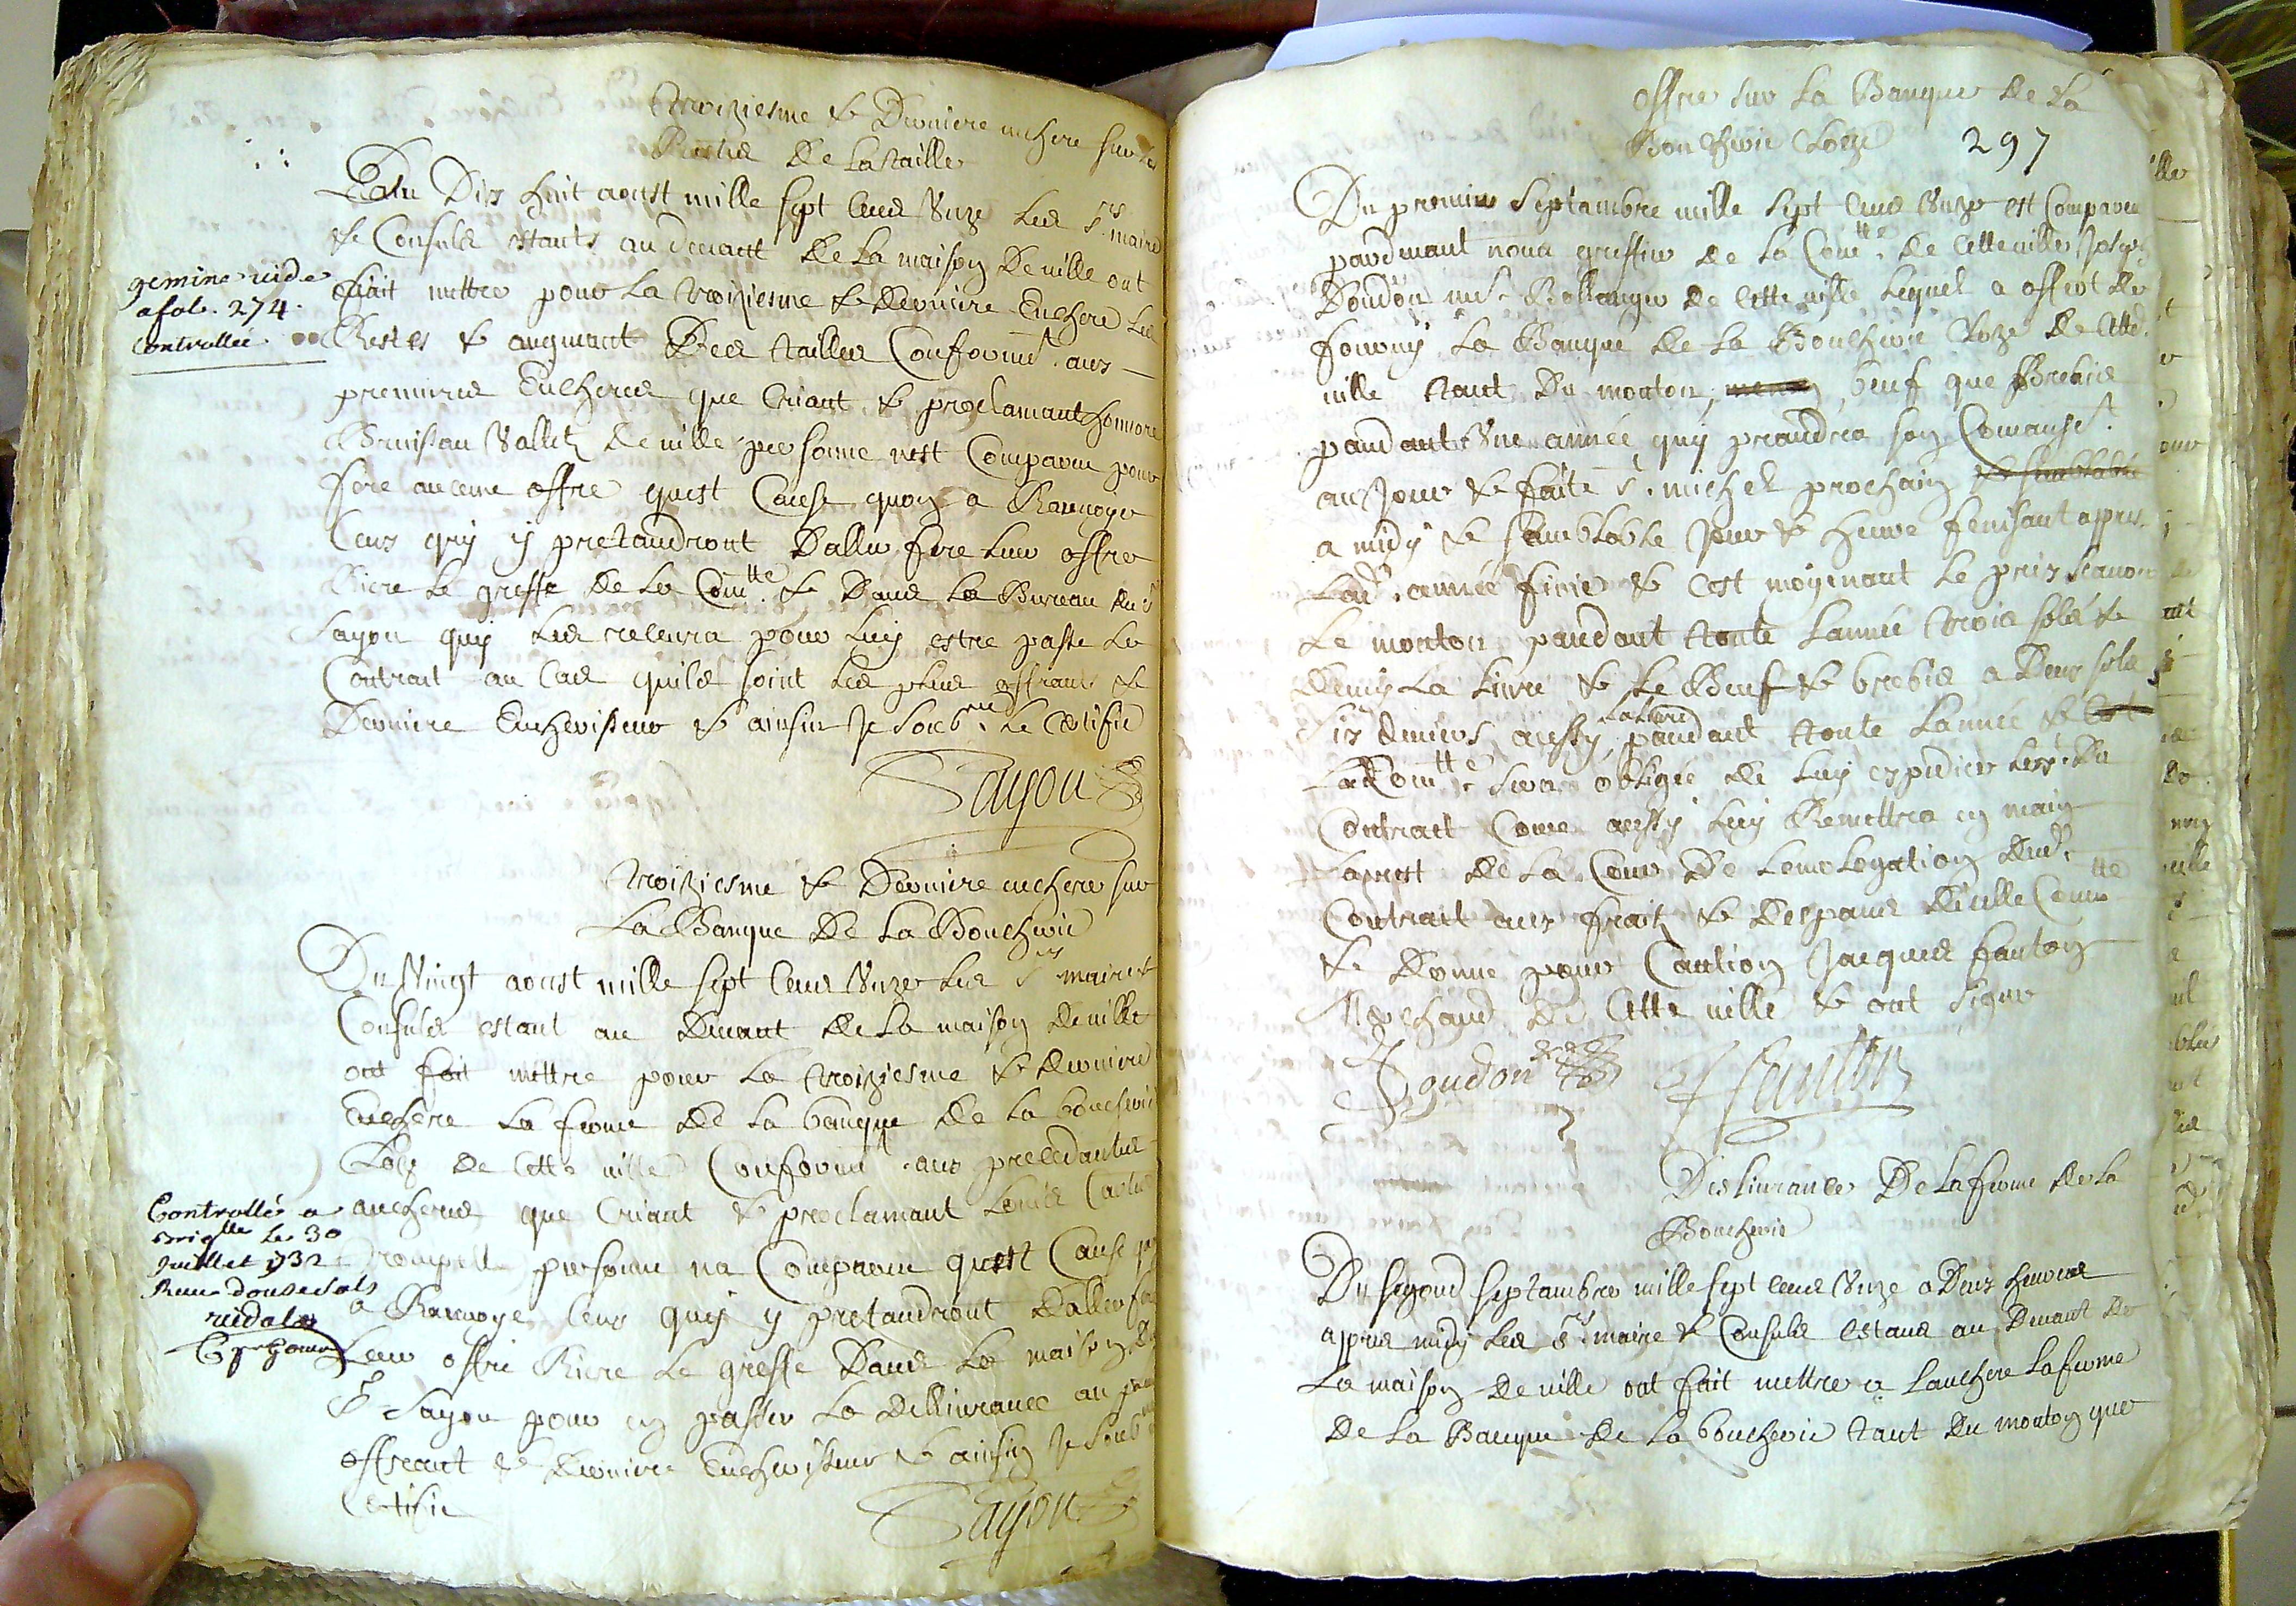 troiziesme & Derniere enchere sur les
Restes De La taille
Du Dix huit aoust mille sept Cens Unze Les Srs maire
& Consuls estants au devant De La maison De ville ont
fait mettre pour La troiziesme & derniere Enchere Les
gemine vide
a fol. 274.
Controllée
Restes & augmant Des tailles Conformt aux
premieres Encheres que Criant & proclamant honnore
Valletz De ville personne nest Comparue pour
fere aucune offre quest Cause quon a Ranvoyer
Ceux quy y pretandront Daller fere Leur offre
Riere Le greffe de La Comtte & Dans Le Bureau du S
Sayou quy Les recevra pour Luy estre passe Le
Contrait au Cas quils soint Les plus offrans &
Derniere Encherisseur & ainsin Je soubne Le Certifie
Sayou
troiziesme & Derniere enchere sur
La Banque De La Boucherie
Du Vingt aoust mille sept Cens Unze Les Srs maire &
Consuls estant au Devant De La maison de ville
ont fait mettre pour La troiziesme & derniere
Enchere La ferme De La banque De La boucherie
Cloze De Cette ville Conformt aux precedantes
Controllé a
le 30
Juillet 1732
Receu douse sols
encheres que Criant & proclamant Louis
trompette personne na Comparue quest Cause quon
a Ranvoye Ceux quy y pretandront Daller fere
Leur offre Riere Le greffe Dans La maison Du
S Sayou pour en passer La Dellivrance au plus
offreant & Derniere Encherisseur & ainsin Je soubne
Certifie
Sayou
offre sur La Banque De La
Boucherie Cloze
297
Du premier Septambre mille Sept Cens Unze est Comparu
pardevant nous greffier de La Comtte De Cette ville
Doudon me Bollanger De Cette ville Lequel a offert De
fournir La Banque de La Boucherie Cloze De Cette
ville tant Du mouton, beuf que Brebis
pandant Une année quy prandra son Comansemt
au Jour & faite St michel prochain
a midy & samblable Jour & heure finisant appres
Lade année finie & Cest moyenant Le prix scavoir
Le mouton pandant toute Lannée trois sols &
Demy La Livre & Le Beuf & brebis a Deux sols
Six deniers aussy La Livre pandant toute Lannée &
La Comtte sera obligée de Luy expedier Du
Contract Come aussy Luy Remettra en main
Larrest De La Cour De Lomologation Dud
Contrait aux fraix & Despans Dicelle Comtte
& Donne pour Caution Jacques Fanton
Marchand De Cette ville & ont signe
Doudon Fanton
Deslivrance De La ferme De La
Boucherie
Du segond Septambre mille sept Cens Unze a Deux heures
appres midy Les Srs maire & Consuls Estans au Devant De
La maison De ville ont fait mettre a Lanchere La ferme
De La Banque De La boucherie tant Du mouton que